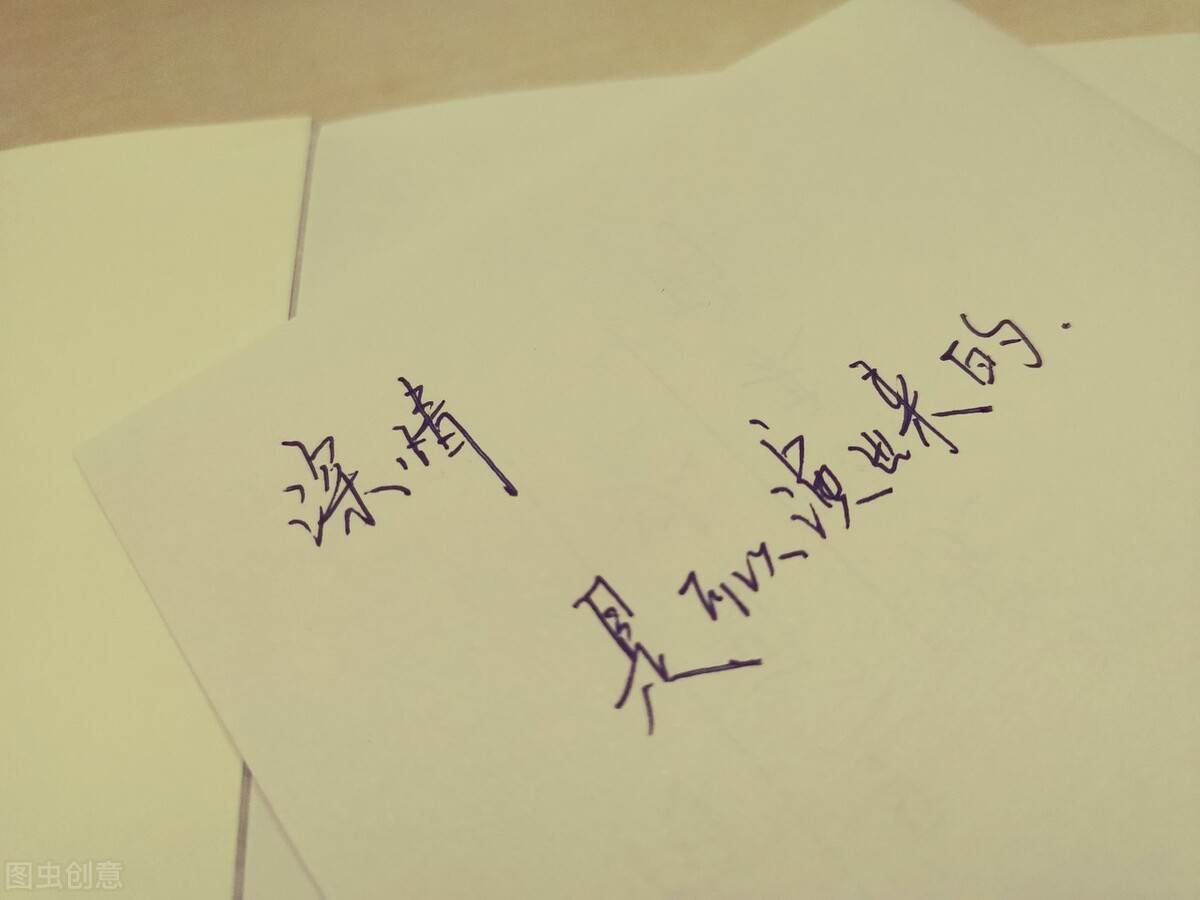 深情
是可以演出来的.
图虫创意